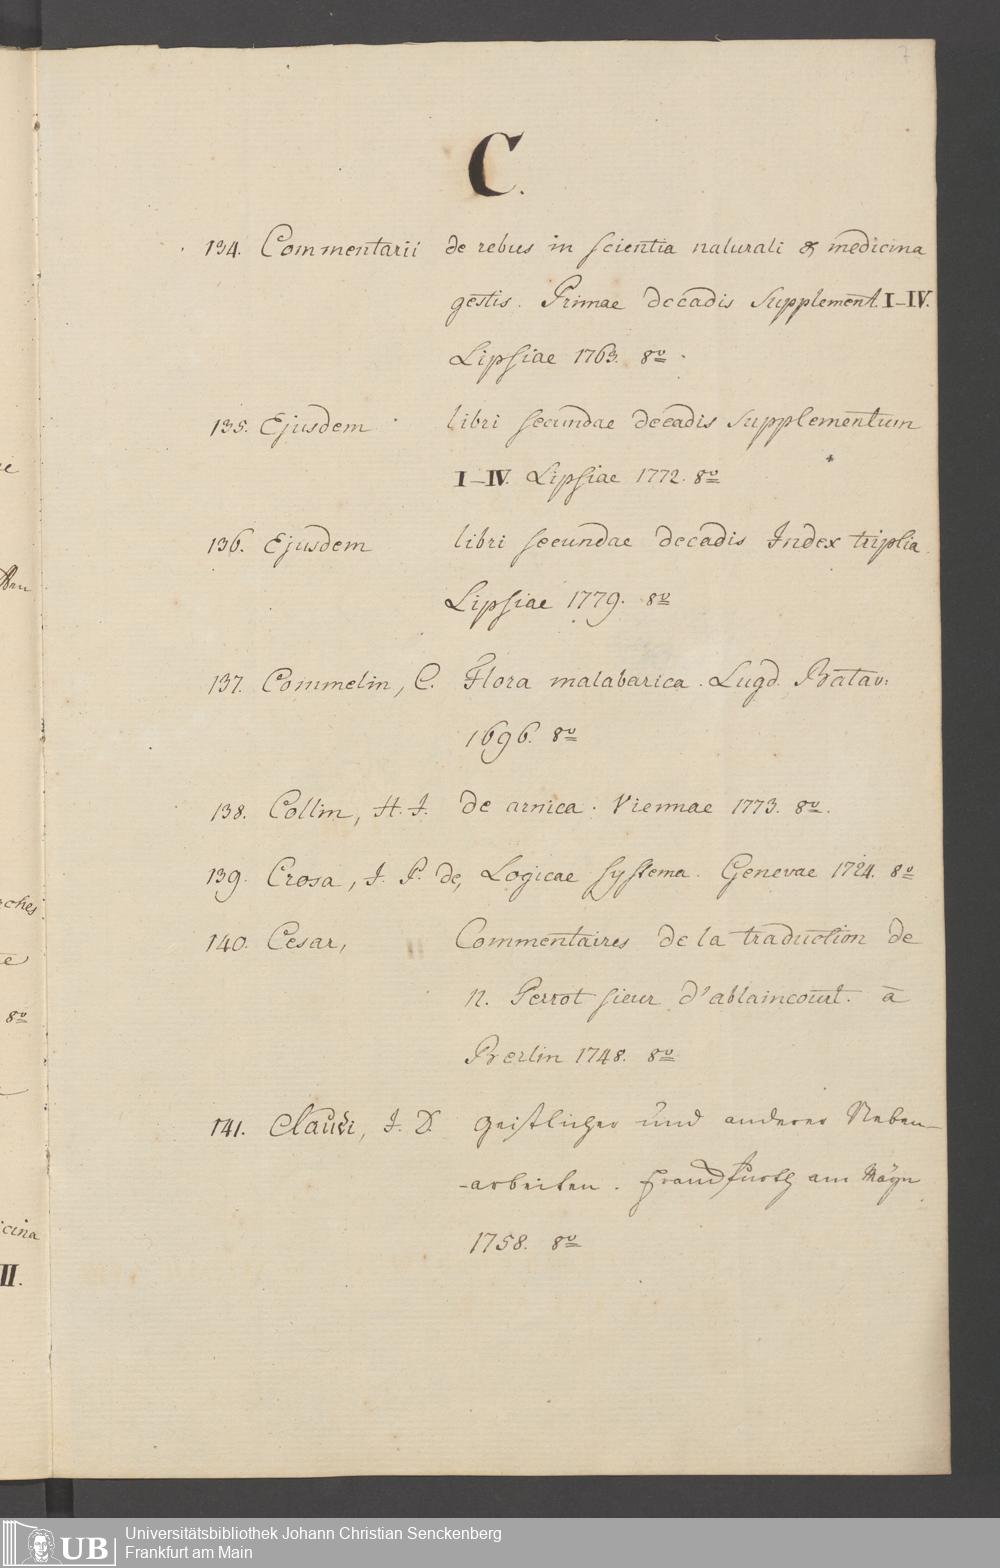 7
C.
134. Commentarii de rebus in scientia naturali & medicina
gestis. Primae decadis Supplement. I–IV.
Lipsiae 1763. 8º
135. Ejusdem libri secundae decadis supplementum
I–IV. Lipsiae 1772. 8º
136. Ejusdem libri secundae decadis Index triplia
Lipsiae 1779. 8º
137. Commelin, C. Flora malabarica. Lugd. Batav:
1696. 8º
138. Collin, H. J. de arnica. Viennae 1773. 8º.
139. Crosa, J. P. de, Logicae systema. Genevae 1724. 8º
140. Cesar, Commentaires de la traduction de
N. Perrot sieur d'ablaincourt. à
Berlin 1748. 8º
141. Claudi, J. D. geistlicher und anderer Neben-
-arbeiten. Franckfurth am Mayn
1758. 8º
8º
icina
II.
UB
Universitätsbibliothek Johann Christian Senckenberg
Frankfurt am Main